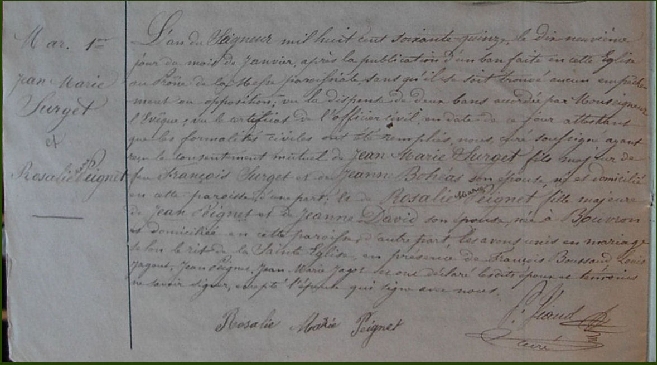 Mar. 1re
Jean Marie
Surget
et
Rosalie Peignet
L'an du Seigneur mil huit cent soixante-quinze, le dix neuvième
jour du mois de Janvier, après la publication d'un ban faite en cette Eglise
au Prône de la Messe paroissiale sans qu'il se soit trouvé aucun empêche
ment ou opposition; vu la dispense de deux bans accordée par Monseigneur
l'Evêque; vu le certificat de l'officier civil, en date de ce jour attestant
que les formalités civiles ont été remplies, nous, curé soussigné ayant
reçu le consentement mutuel de Jean Marie Surget fils majeur de
feu François Surget et de Jeanne son épouse, né et domicilié
en cette paroisse d'une part; et de Rosalie Marie Peignet fille majeure
de Jean Peignet et de Jeanne David son épouse, née à Bouvron
et domiciliée en cette paroisse, d'autre part, les avons unis en mariage
selon le rit de la Sainte Eglise en présence de François Boussaud, Louis
Jean Peignet, Jean Marie qui ont déclaré les dits époux et témoins
ne savoir signer, excepté l'épouse qui signe avec nous.
Rosalie Marie Peignet
curé